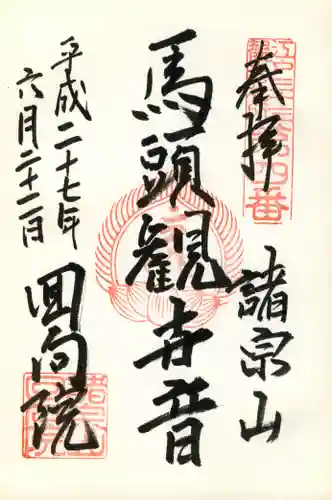 奉拝
諸宗山
馬頭観世音
平成二十七年
六月二十二日
回向院